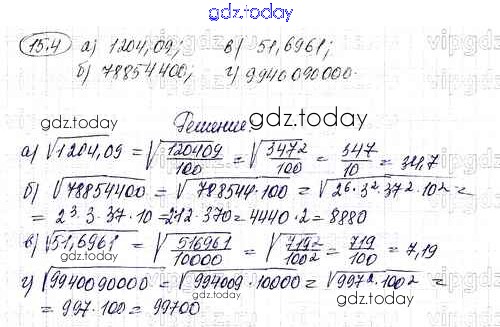 gdz.today
15.4 а) 1204,09; в) 51,6961;
б) 78854400; г) 9940090000.
gdz.today gdz.today
Решение:
gdz.today
а) √1204,09 = √(120409/100) = √(347²/100) = 347/10 = 34,7
б) √78854400 = √(788544·100) = √(2⁶·3²·37²·10²) =
= 2³·3·37·10 = 212·370 = 4440·2 = 8880
в) √51,6961 = √(516961/10000) = √(719²/100²) = 719/100 = 7,19
г) √9940090000 = √(994009·10000) = √(997²·100²) =
= 997·100 = 99700
gdz.today